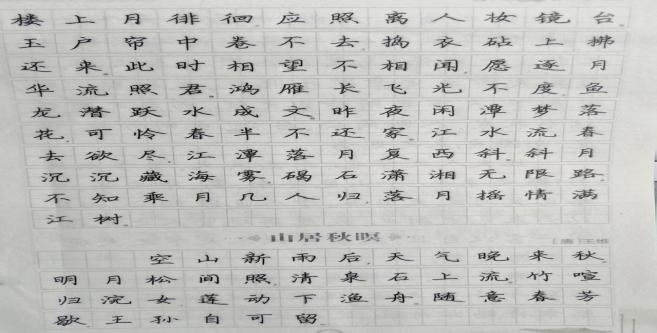 楼上月徘徊应照离人妆镜台
玉户帘中卷不去捣衣砧上拂
还来此时相望不相闻愿逐月
华流照君鸿雁长飞光不度鱼
龙潜跃水成文昨夜闲潭梦落
花可怜春半不还家江水流春
去欲尽江潭落月复西斜斜月
沉沉藏海雾碣石潇湘无限路
不知乘月几人归落月摇情满
江树
山居秋暝 [唐]王维
空山新雨后天气晚来秋
明月松间照清泉石上流竹喧
归浣女莲动下渔舟随意春芳
歇王孙自可留